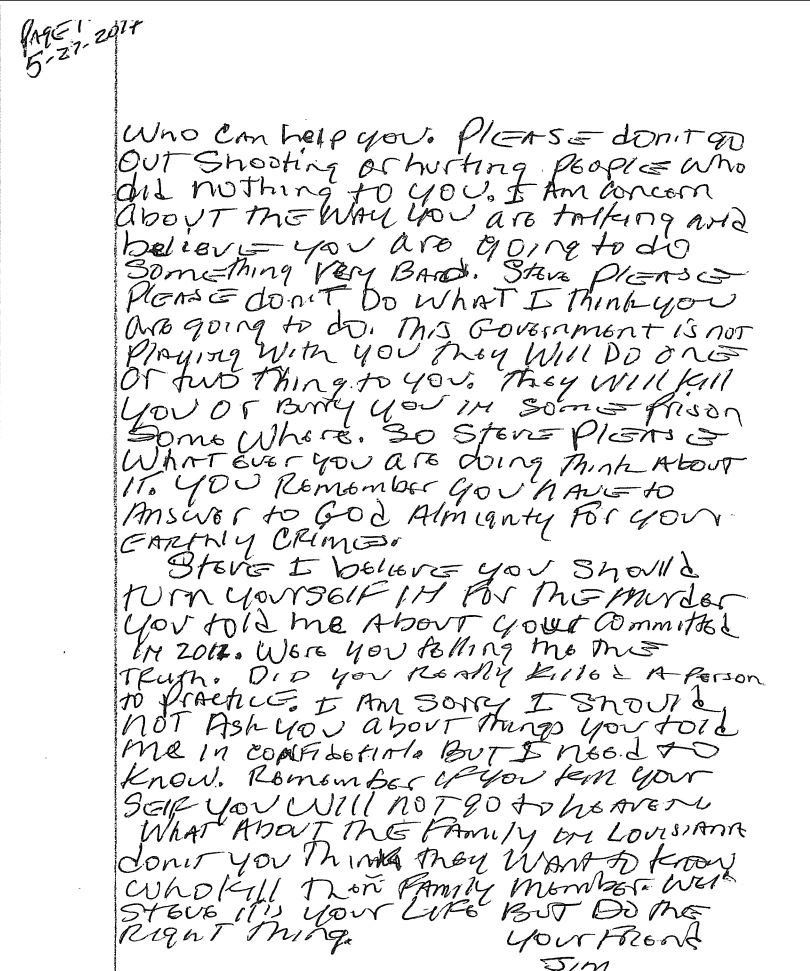 PAGE 1
5-27-2017
WHO CAN help you. PLEASE don't go
OUT Shooting or hurting PEOPLE who
did NOTHING TO YOU. I AM concern
ABOUT THE WAY YOU are talking and
believe you are going to do
Something VERY BAD. Steve PLEASE
PLEASE don't DO WHAT I Think you
are going to do. This Government is NOT
PLAYing With you They WILL DO ONE
Or two Thing to you. They Will kill
You Or Burry you in Some Prison
Some Where. So Steve PLEASE
WHAT ever you are doing Think About
IT. YOU Remember you HAVE to
ANSWER to GOd ALMIGHTY For your
EARTHLY CRIMES.
Steve I believe you Should
turn yourself IN For THE Murder
You told me ABOUT you Committed
IN 2012. Were you telling me THE
TRUTH. DID you Really Killed A Person
to practice. I AM Sorry I Should
NOT ASK you about Things you told
me in BUT I need to
Know. Remember if you kill your
SELF you WILL NOT go to HEAVEN
WHAT ABOUT THE FAMILY in LOUISIANA
don't you Think they WANT to know
who kill Their FAMILY member. Well
Steve it's your LIFE BUT DO The
RIGHT Thing. Your Friend
Jim